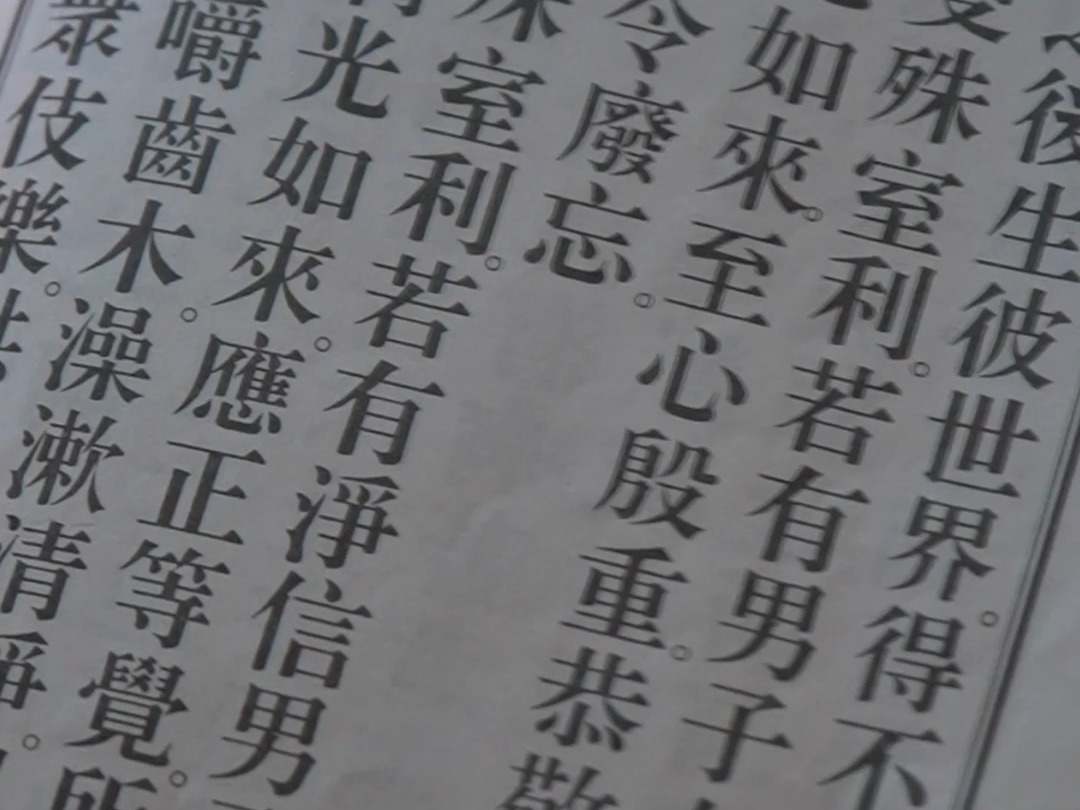 後生彼世界。得不
殊室利。若有男子
如來。至心殷重。恭敬
令廢忘。
殊室利。若有淨信男
光如來。應正等覺。所
嚼齒木。澡漱清淨。
眾伎樂。